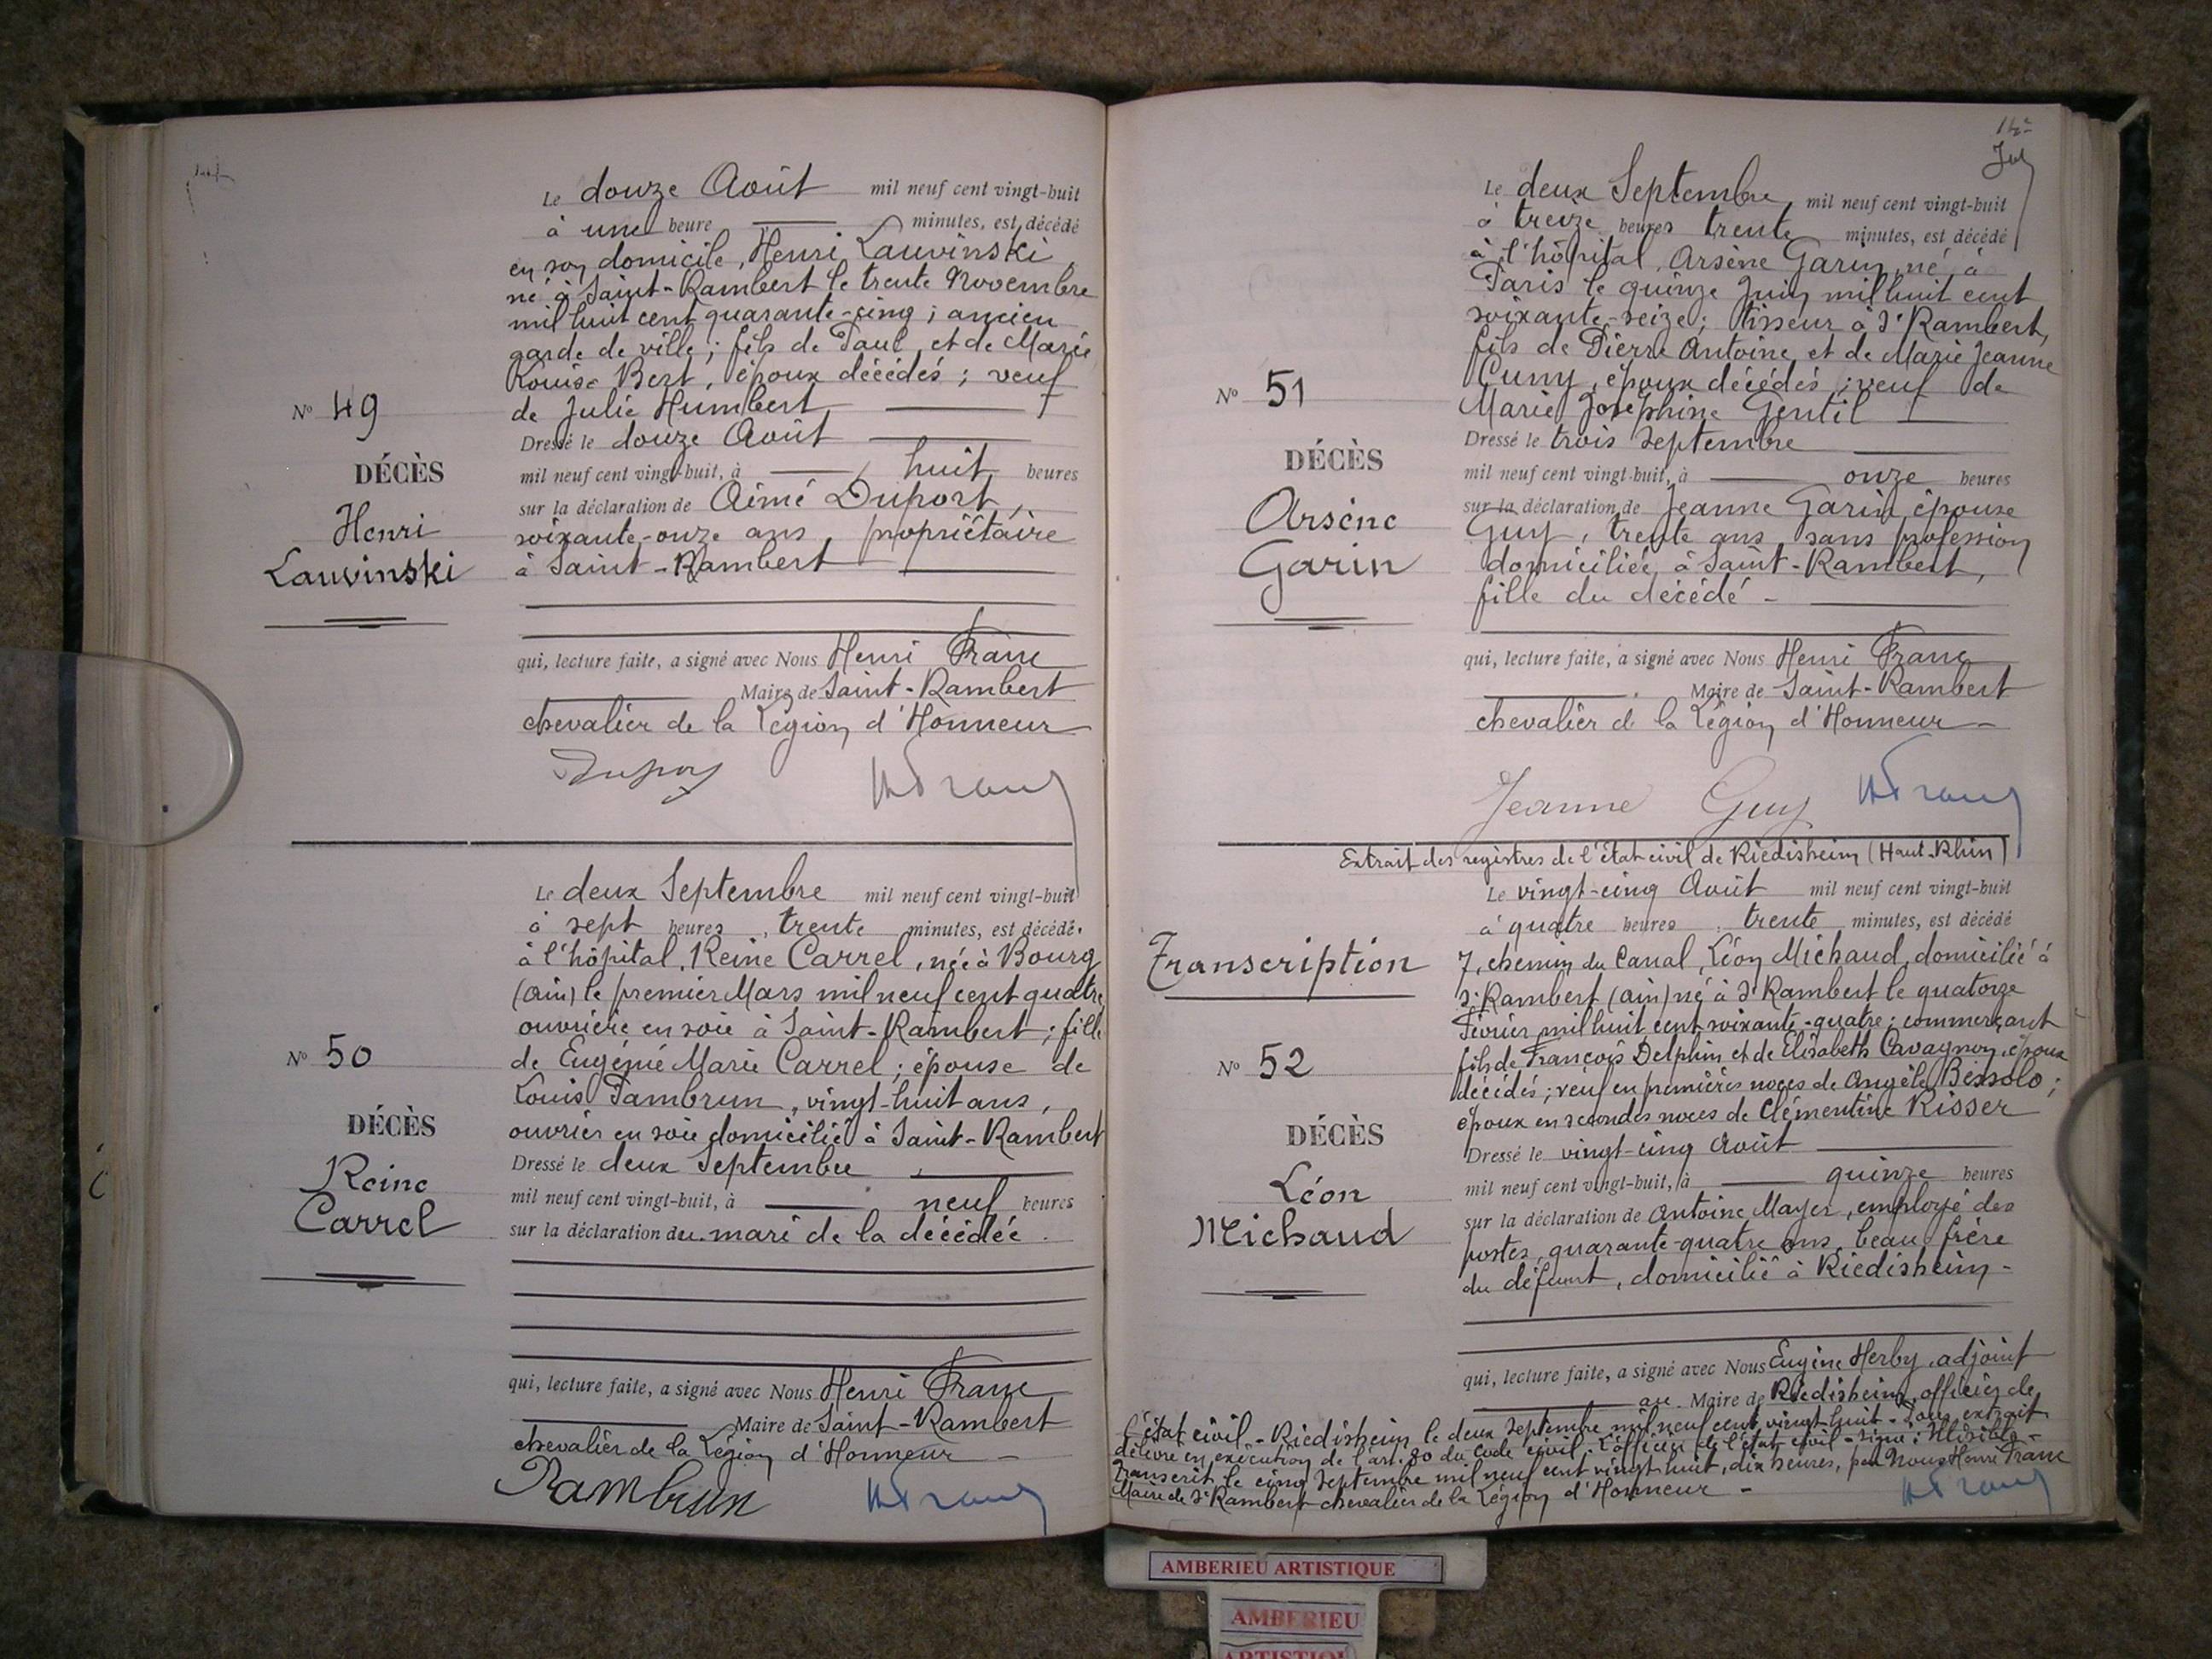 Le douze Août mil neuf cent vingt-huit
à une heure minutes, est décédé
en son domicile, Henri Lauvinski
né à Saint-Rambert le trente Novembre
mil huit cent quarante-cinq ; ancien
garde de ville ; fils de Paul, et de Marie
Louise Bert, époux décédés ; veuf
de Julie Humbert
Dressé le douze Août
mil neuf cent vingt-huit, à huit heures
sur la déclaration de Aimé Duport,
soixante-onze ans, propriétaire
à Saint-Rambert
qui, lecture faite, a signé avec Nous Henri Franc
Maire de Saint-Rambert
chevalier de la Légion d'Honneur
No 49
DÉCÈS
Henri
Lauvinski
Le deux Septembre mil neuf cent vingt-huit
à sept heures, trente minutes, est décédé.
à l'hôpital, Reine Carrel, née à Bourg
(Ain) le premier Mars mil neuf cent quatre
ouvrière en soie à Saint-Rambert ; fille
de Eugénie Marie Carrel ; épouse de
Louis Pambrun, vingt-huit ans,
ouvrier en soie domicilié à Saint-Rambert
Dressé le deux Septembre
mil neuf cent vingt-huit, à neuf heures
sur la déclaration du mari de la décédée.
qui, lecture faite, a signé avec Nous Henri Franc
Maire de Saint-Rambert
chevalier de la Légion d'Honneur -
Pambrun HFranc
No 50
DÉCÈS
Reine
Carrel
Le deux Septembre, mil neuf cent vingt-huit
à treize heures trente minutes, est décédé
à l'hôpital, Arsène Garin, né à
Paris le quinze Juin mil huit cent
soixante-seize ; tisseur à St Rambert,
fils de Pierre Antoine, et de Marie Jeanne
Cuny, époux décédés ; veuf de
Marie Joséphine Gentil
Dressé le trois Septembre
mil neuf cent vingt-huit, à onze heures
sur la déclaration de Jeanne Garin, épouse
Guy, trente ans, sans profession
domiciliée à Saint-Rambert,
fille du décédé -
qui, lecture faite, a signé avec Nous Henri Franc
Maire de Saint-Rambert
chevalier d la Légion d'Honneur -
Jeanne Guy HFranc
No 51
DÉCÈS
Arsène
Garin
Extrait des registres de l'état civil de Riedisheim (Haut-Rhin)
Le vingt-cinq Août mil neuf cent vingt-huit
à quatre heures, trente minutes, est décédé
7, chemin du Canal, Léon Michaud, domicilié à
St Rambert (Ain) né à St Rambert le quatorze
Février mil huit cent soixante-quatre ; commerçant
fils de François Delphin et de Elisabeth Cavagnon, époux
décédés ; veuf en premières noces de Angèle Bessolo ;
époux en secondes noces de Clémentine Risser
Dressé le vingt-cinq Août
mil neuf cent vingt-huit, à quinze heures
sur la déclaration de Antoine Mayer, employé des
postes, quarante-quatre ans, beau frère
du défunt, domicilié à Riedisheim -
qui, lecture faite, a signé avec Nous Eugène Herby, adjoint
au Maire de Riedisheim, officier de
l'état civil - Riedisheim, le deux Septembre mil neuf cent vingt huit - Pour extrait
délivré en exécution de l'art. 80 du Code civil. L'officier de l'état civil - signé : Illisible -
Transcrit le cinq Septembre mil neuf cent vingt huit, dix heures, par Nous Henri Franc
Maire de St Rambert chevalier de la Légion d'Honneur -
HFranc
Transcription
No 52
DÉCÈS
Léon
Michaud
AMBERIEU ARTISTIQUE
AMBERIEU
ARTISTIQUE